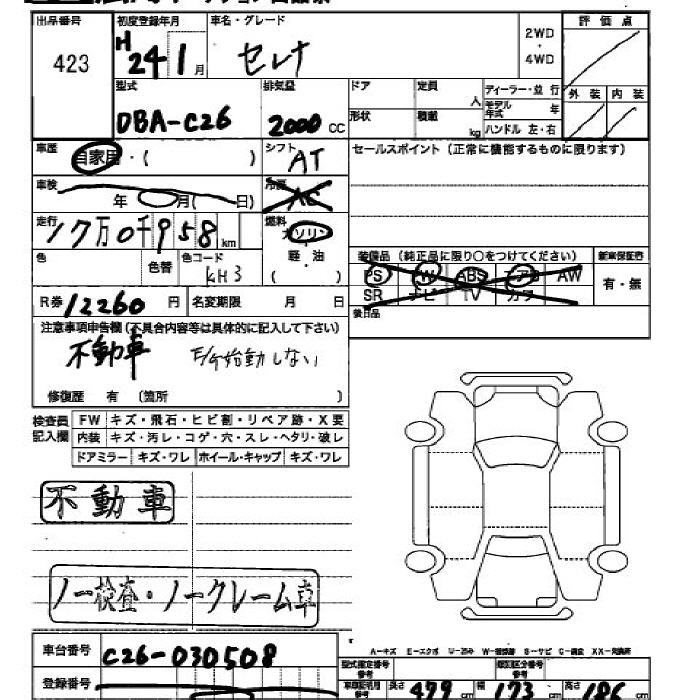 出品番号 初度登録年月 車名・グレード 評価点
423 H 24 1 月 セレナ 2WD ・ 4WD
型式 排気量 ドア 定員 人 ディーラー・並行 外装 内装
DBA-C26 2000 CC 形状 積載 kg モデル年式 年
ハンドル 左・右
車歴 自家用・( ) シフト AT セールスポイント(正常に機能するものに限ります)
車検 年 月( 日) 冷房 AC
走行 17万0千958 km 燃料 ガソリン
色 色替 色コード KH3 軽・油 ( )
装備品(純正品に限り○をつけてください) 新車保証書
PS PW ABS エアB AW 有・無
SR ナビ TV カワ
R券 12260 円 名変期限 月 日 後日品
注意事項申告欄(不具合内容等は具体的に記入して下さい)
不動車 E/G始動しない
修復歴 有 (箇所 )
検査員記入欄 FW キズ・飛石・ヒビ割・リペア跡・X要
内装 キズ・汚レ・コゲ・穴・スレ・ヘタリ・破レ
ドアミラー キズ・ワレ ホイール・キャップ キズ・ワレ
不動車
ノー検査・ノークレーム車
A-キズ E-エクボ U-凹み S-サビ
車台番号 C26-030508
型式指定番号 類別区分番号
登録番号 長さ 479 cm 幅 173 cm 高さ 186 cm